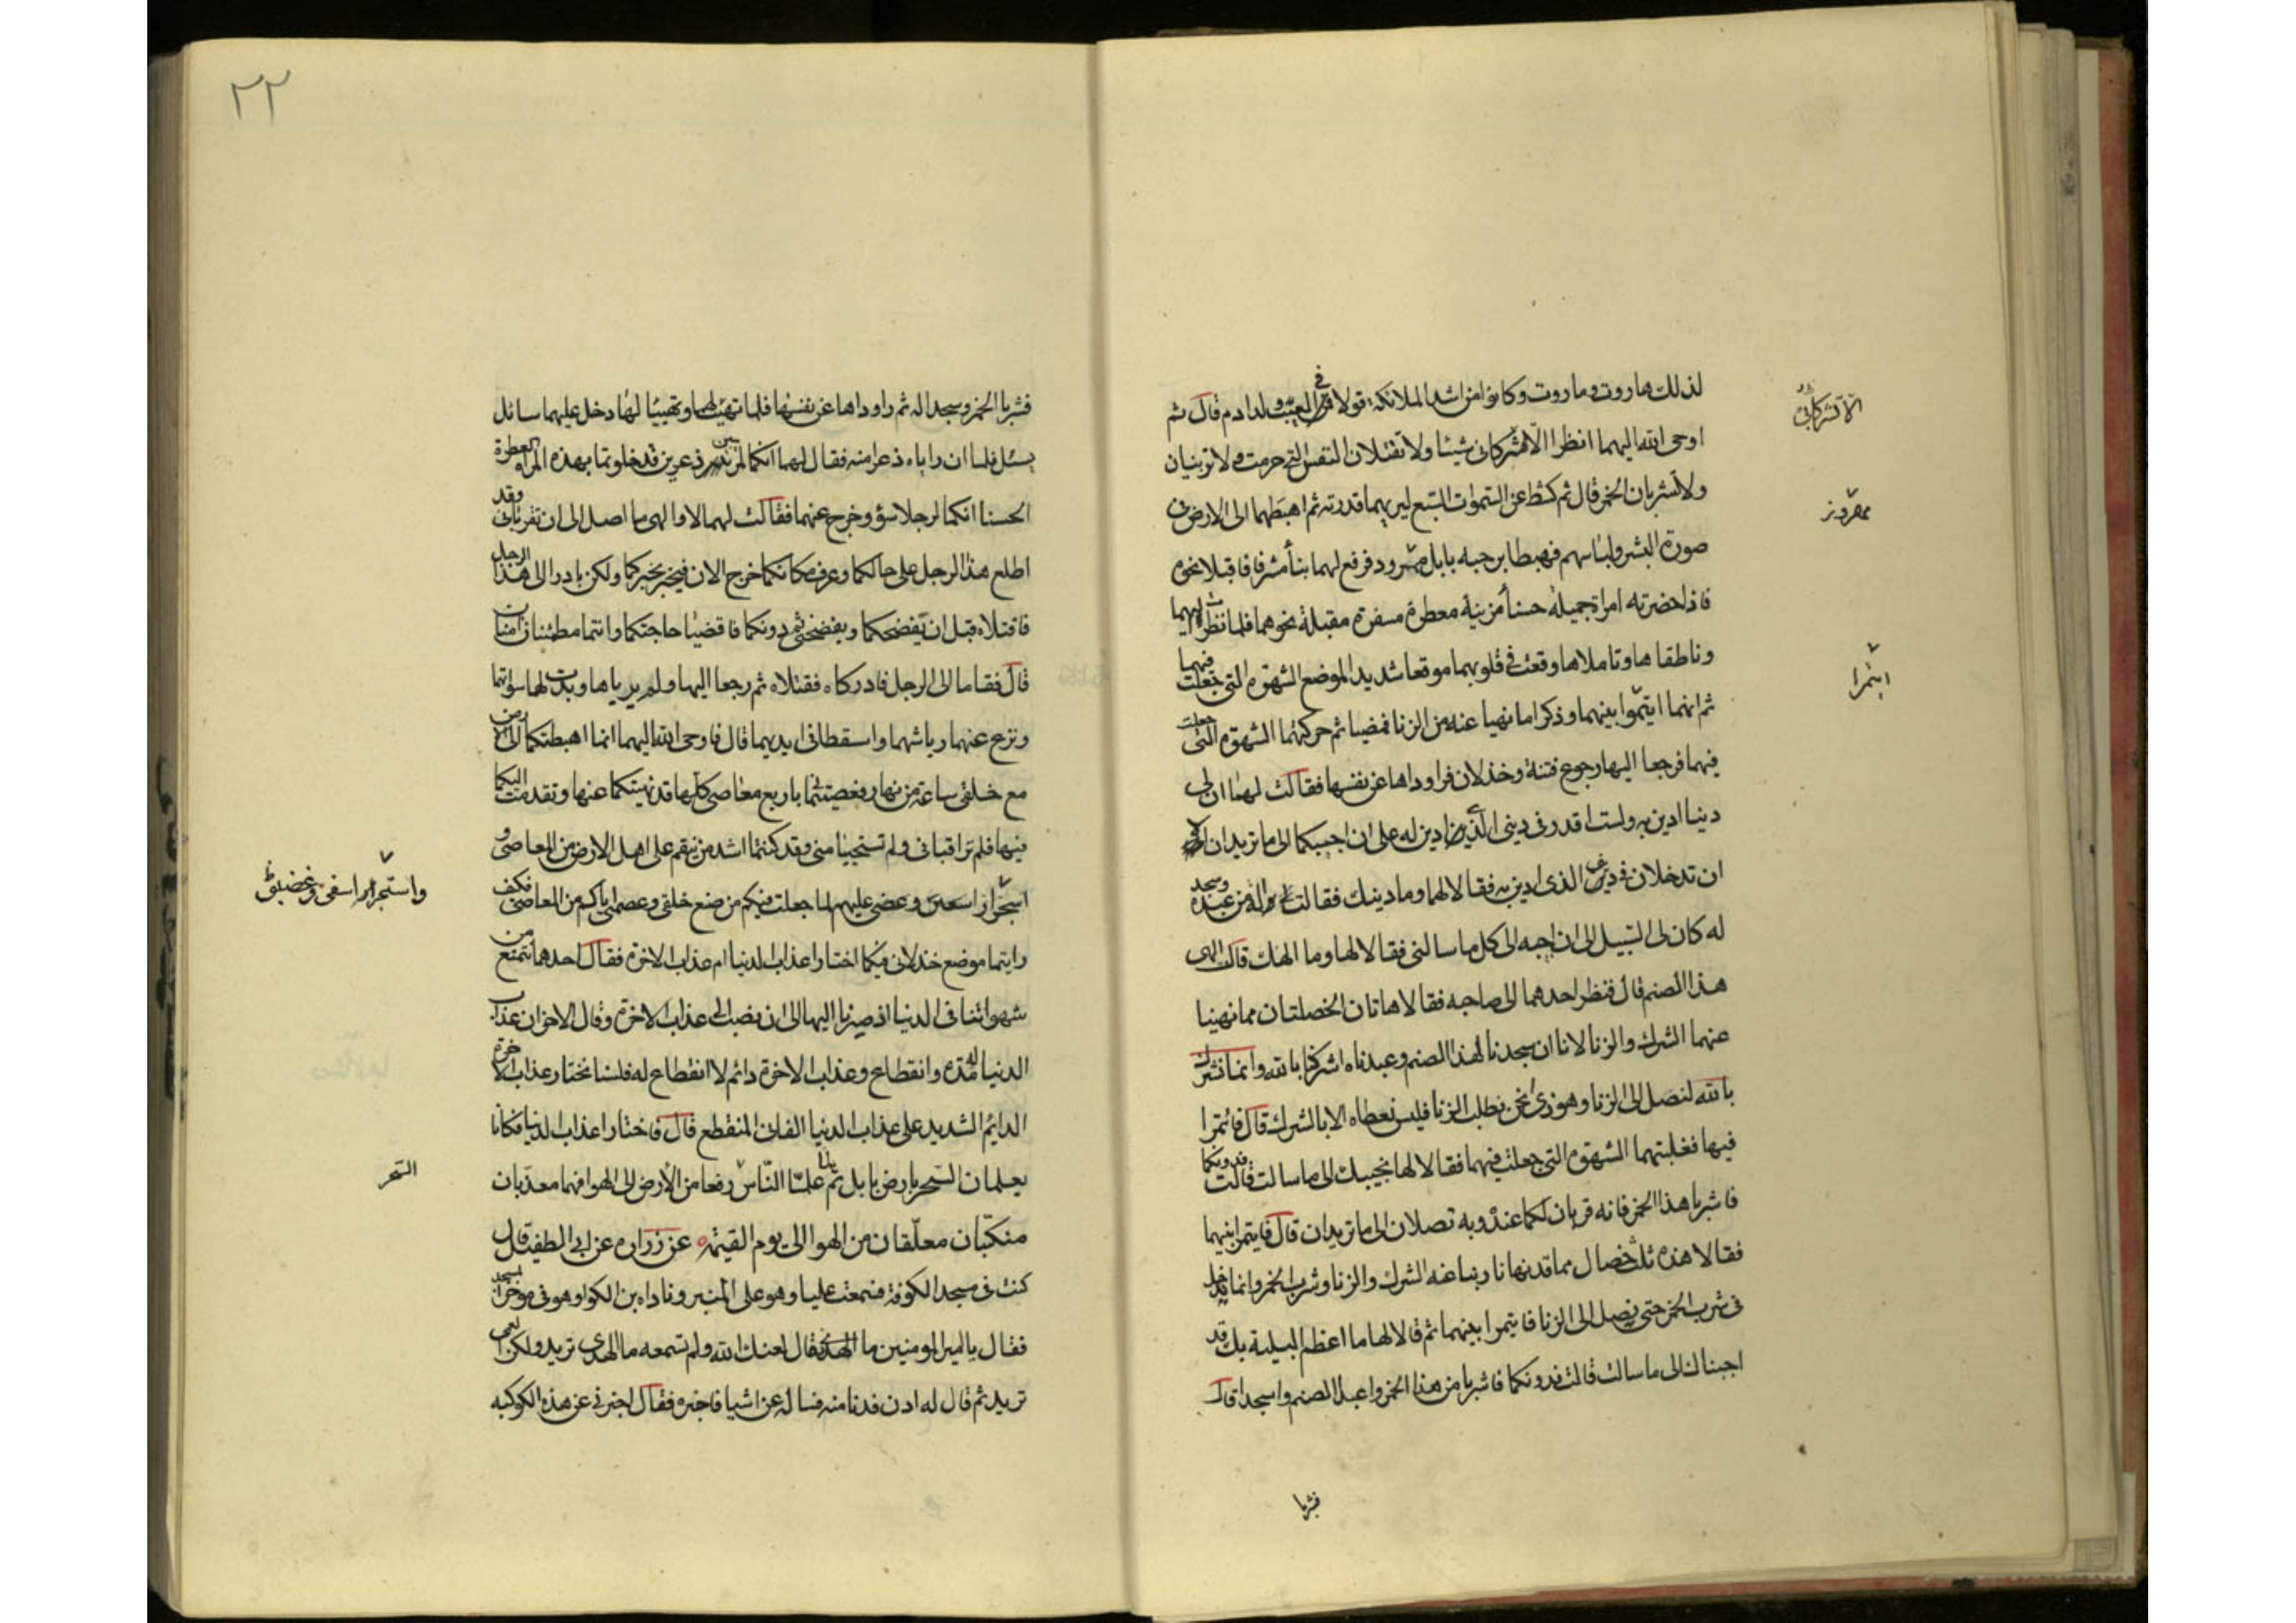 لذلك هاروت وماروت وكانوا من اشد الملائكة قولا في العيب لولد ادم قال ثم
اوحى الله اليهما انظرا الا تشركا بي شيئا ولا تقتلان النفس التي حرمت ولا تزنيان
ولا تشربان الخمر قال ثم كشط عن السموات السبع ليريهما قدرته ثم اهبطهما الى الارض في
صورة البشر ولباسهم فهبطا برحبه بابل مهروز فرفع لهما بنأ مشرفا فاقبلا نحوه
فاذا حضرته امراة جميلة حسنأ مزينة معطرة مسفرة مقبلة نحوهما فلما نظرا اليها
وناطقاها وتاملاها وقعت في قلوبهما موقعا شديدا لموضع الشهوة التي جعلت فيهما
ثم انهما ايتمرا بينهما وذكرا ما نهيا عنه من الزنا فمضيا ثم حركتهما الشهوة التي جعلت
فيهما فرجعا اليها رجوع فتنة وخذلان فراوداها عن نفسها فقالت لهما ان لى
دينا ادين به ولست اقدر في ديني الذي ادين له على ان اجيبكما الى ما تريدان الا
ان تدخلان في ديني الذي ادين به فقالا لها وما دينك فقالت لى اله من عبده وسجد
له كان لى السبيل الى ان اجبه الى كل ما سالنى فقالا لها وما الهك قالت الهى
هذا الصنم قال فنظر احدهما الى صاحبه فقالا هاتان الخصلتان مما نهينا
عنهما الشرك والزنا لانا ان سجدنا لهذا الصنم وعبدناه اشركنا بالله وانما نشرك
بالله لنصل الى الزنا وهو ذى نحن نطلب الزنا فليس نعطاه الا بالشرك قال فائتمرا
فيها فغلبتهما الشهوة التي جعلت فيهما فقالا لها نجيبك الى ما سالت قالت فدونكما
فاشربا هذا الخمر فانه قربان لكما عنده وبه تصلان الى ما تريدان قال فايتمرا بينهما
فقالا هذه ثلث خصال مما قد نهانا ربنا عنه الشرك والزنا وشرب الخمر وانما ندخل
فى شرب الخمر حتى نصل الى الزنا فايتمرا بينهما ثم قالا لها ما اعظم البلية بك قد
اجبناك الى ما سالت قالت فدونكما فاشربا من هذا الخمر واعبدا الصنم واسجدا قال
فشربا
الا تشركا بي
مهروز
ايتمرا
٢٢
فشربا الخمر وسجدا له ثم راوداها عن نفسها فلما تهيئت لهما وتهيئا لها دخل عليهما سائل
يسئل فلما ان راياه ذعرا منه فقال لهما انكما لمريبين ذعرين قد خلوتما بهذه المراة العطرة
الحسنا انكما لرجلا سؤ وخرج عنهما فقالت لهما لا والهى ما اصل الى ان تقرباني وقد
اطلع هذا الرجل على حالكما وعرف مكانكما خرج الان فيخبر بخبركما ولكن بادرا الى هذا الرجل
فاقتلاه قبل ان يفضحكما ويفضحني ثم دونكما فاقضيا حاجتكما وانتما مطمئنان امنان
قال فقاما الى الرجل فادركاه فقتلاه ثم رجعا اليها ولم يرياها وبدت لهما سواتهما
ونزع عنهما رياشهما واسقطا في ايديهما قال فاوحى الله اليهما انما اهبطتكما الى الارض
مع خلقى ساعة من نهار فعصيتماني باربع معاصى كلها قد نهيتكما عنها وتقدمت اليكما
فيها فلم تراقباني ولم تستحييا مني وقد كنتما اشد من ينقم على اهل الارض من المعاصى و
عليهم لما جعلت فيكم من صنع خلقى وعصمتي اياكم من المعاصى فكيف
رايتما موضع خذلاني فيكما اختارا عذاب الدنيا ام عذاب الاخرة فقال احدهما نتمتع من
شهواتنا فى الدنيا اذ صرنا اليها الى ان نصير الى عذاب الاخرة وقال الاخر ان عذاب
الدنيا له مدة وانقطاع وعذاب الاخرة دائم لا انقطاع له فلسنا نختار عذاب الاخرة
الدايم الشديد على عذاب الدنيا الفانى المنقطع قال فاختارا عذاب الدنيا فكانا
يعلمان السحر بارض بابل ثم لما علما الناس رفعا من الارض الى الهوا فهما معذبان
منكبان معلقان من الهوا الى يوم القيمة عن زرارة عن ابى الطفيل قال
كنت فى مسجد الكوفة فسمعت عليا وهو على المنبر وناداه ابن الكوا وهو في موخر المسجد
فقال يا امير المومنين ما الهدى فقال لعنك الله ولم تسمعه ما الهدى تريد ولكن العمى
تريد ثم قال له ادن فدنا منه فساله عن اشيا فاخبره فقال اخبرني عن هذه الكوكبه
السحر